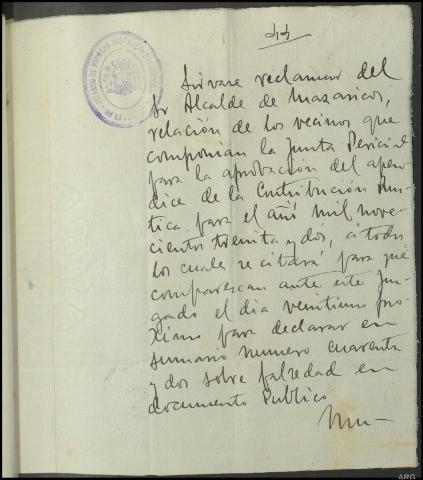 Sirvase reclamar del
Sr Alcalde de Mazaricos,
relación de los vecinos que
componian la Junta Pericial
para la aprobación del apen
dice de la Contribución Rus
tica para el año mil nove-
cientos treinta y dos, á todos
los cuales se citará para que
comparezcan ante este Juz
gado el dia veintiuno pro
ximo para declarar en
sumario numero cuarenta
y dos sobre falsedad en
documento Publico
ARG